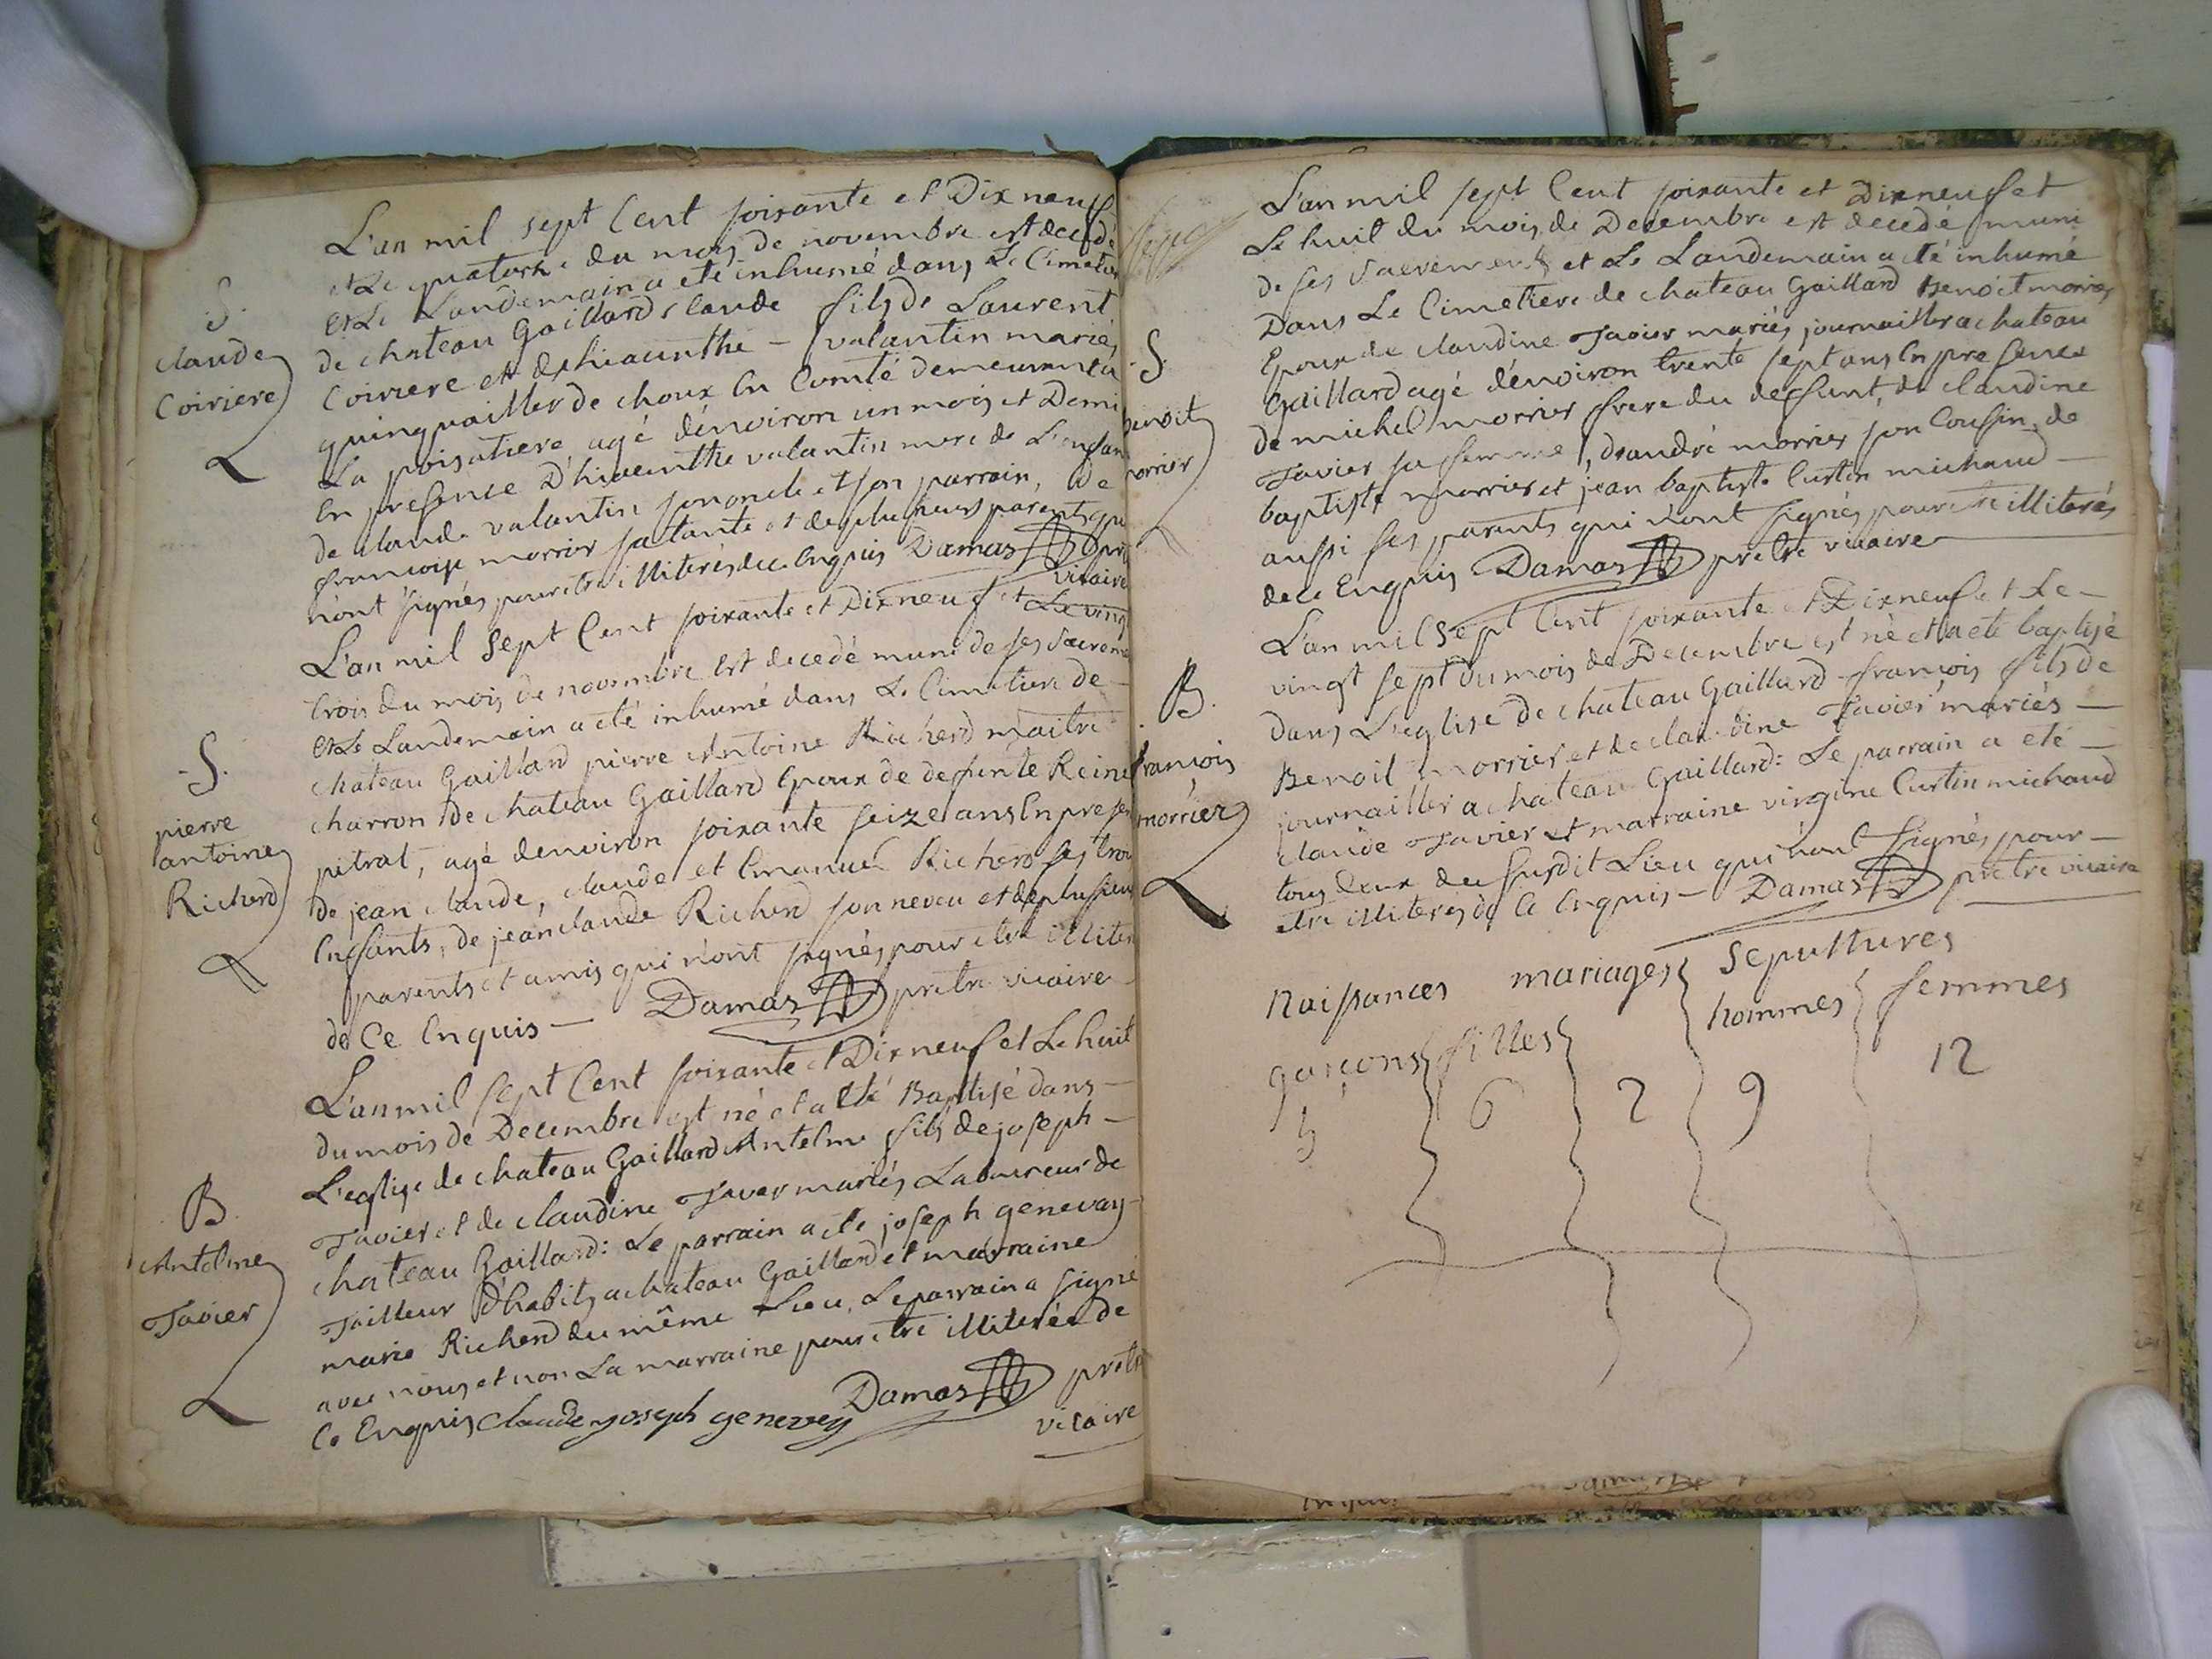 S.
claude
Coiriere
L'an mil sept Cent soixante et Dix neuf
et Le quatorze du mois de novembre est decedé
et Le Landemain a eté inhumé dans Le Cimetie
de chateau Gaillard claude fils de Laurent
Coiriere et d'hiacinthe - valantin mariés
quinquailler de choux En Comté demeurant a
La poisatiere, agé d'environ un mois et Demi
En presence D'hiacinthe valantin mere de L'enfan
de claude valantin son oncle et son parrain, de
francoise morrier sa tante et de plusieurs parents qui
n'ont signés pour etre illiterés de ce Enquis Damas pre
vicaire
S.
pierre
antoine
Richerd
L'an mil Sept Cent soixante et Dix neuf et Le ving
trois du mois de novembre est decedé muni de ses sacreme
et Le Landemain a eté inhumé dans Le Cimetiere de -
chateau Gaillard pierre Antoine Richerd maitre
charron de chateau Gaillard Epoux de defunte Reine
pitrat, agé d'environ soixante seize ans En presen
de jean claude, claude et Emanuel Richerd ses trois
Enfants, de jean claude Richerd son neveu et de plusieu
parents et amis qui n'ont signés pour etre illiter
de Ce Enquis - Damas pretre vicaire
B.
Antelme
Tavier
L'an mil sept Cent soixante et Dix neuf et Le huit
du mois de Decembre est né et a eté Baptisé dans -
L'eglise de chateau Gaillard Antelme fils de joseph -
Tavier et de claudine Tavier mariés Laboureur de
chateau Gaillard: Le parrain a eté joseph genevay
Tailleur D'habits a chateau Gaillard et marraine
marie Richerd du même Lieu, Le parrain a signé
avec nous et non La marraine pour etre illiterée de
Ce Enquis Claude joseph genevey Damas pretre
vicaire
S.
benoit
morrier
L'an mil sept Cent soixante et Dix neuf et
Le huit du mois de Decembre est decedé muni
de ses sacrements et Le Landemain a eté inhumé
Dans Le Cimetiere de chateau Gaillard Benoit morrier
Epoux de claudine Tavier mariés, journailler a chateau
Gaillard agé d'environ trente sept ans En presence
de michel morrier frere du defunt, de claudine
Tavier sa femme, d'andré morrier son Cousin, de
baptiste morrier et jean baptiste Curtin michaud -
aussi ses parants qui n'ont signés pour etre illiterés
de ce Enquis Damas pretre vicaire
B.
francois
morrier
L'an mil Sept Cent soixante et Dix neuf et Le -
vingt sept du mois de Decembre est né et a eté baptisé
dans L'eglise de chateau Gaillard francois fils de
Benoit morrier et de claudine Tavier mariés -
journailler a chateau Gaillard: Le parrain a eté -
claude Tavier et marraine virgine Curtin michaud
tous deux du susdit Lieu qui n'ont signés pour -
etre illiterés de Ce Enquis - Damas pretre vicaire
Naissances mariages Sepultures
garcons filles hommes femmes
5 6 2 9 12